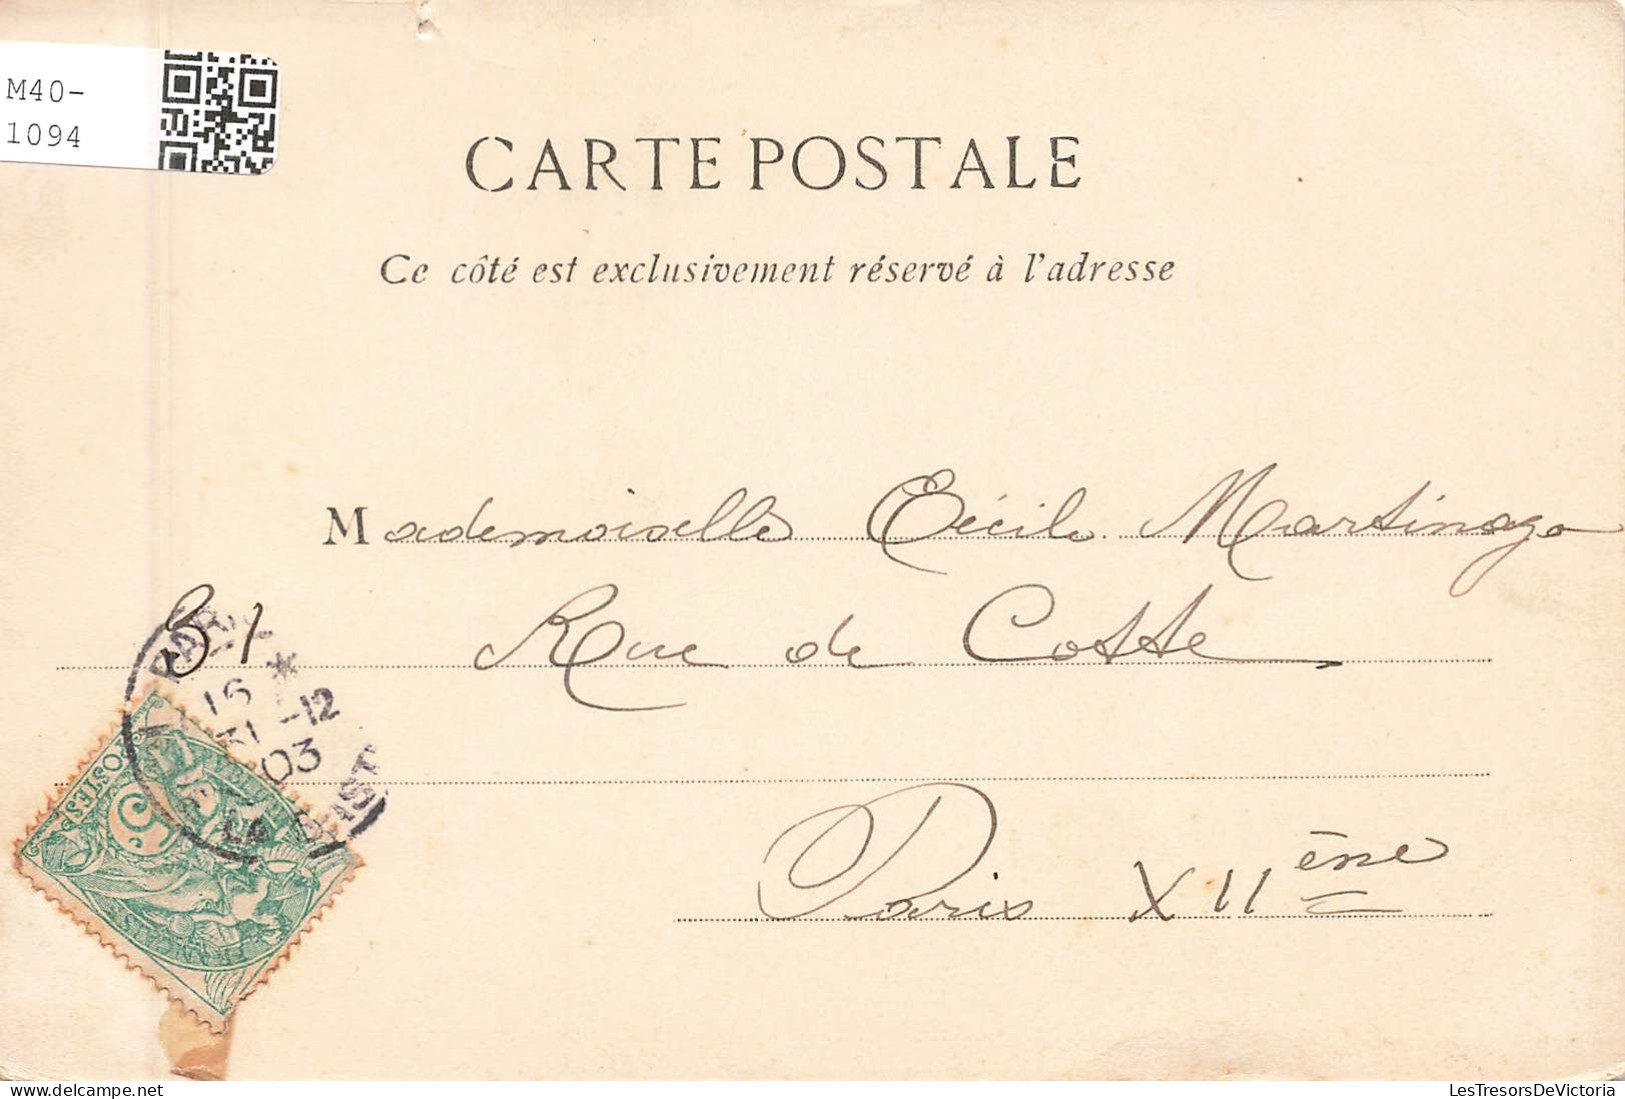 M40-
1094
CARTE POSTALE
Ce côté est exclusivement réservé à l'adresse
Mademoiselle Cécile Martinago
31 Rue de Cotte
Paris XII ème
PARIS
16 *
31 -12
03
POSTES
5
LesTresorsDeVictoria
www.delcampe.net